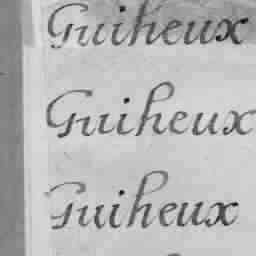 Guiheux
Guiheux
Guiheux